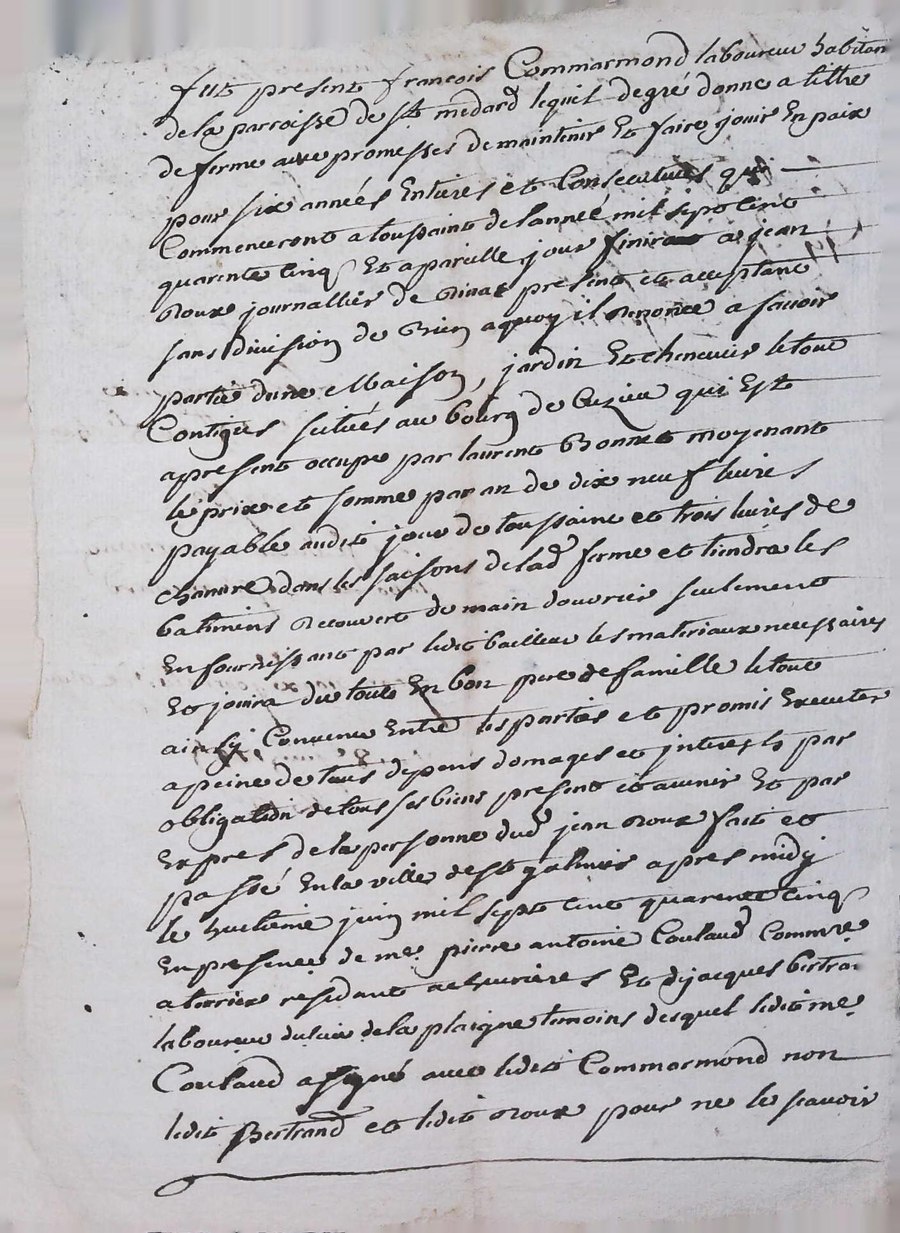 fut present francois Commarmond laboureur habitan
de la parroisse de st medard lequel de gré donne a tiltre
de ferme avec promesses de maintenir Et faire jouir En paix
pour six années Entieres et Consecutives qui
Commenceront a toussaint de l'année mil sept cent
quarente cinq Et a pareille jour finiront a jean
Roux journallier de Rivas present et acceptant
sans division de Rien a quoy il Renonce a savoir
partie d'une Maison, jardin Et chenevier le tout
Contigus scitués au bourg de Cuzieu qui Est
a present occupe par laurent Bonnet moyenant
le prix et somme par an de dix neuf livres
payable audit jour de toussaint et trois livres de
chanvre dans les saisons de lad ferme et tiendra les
batimens Recouvert de main douvrier seulement
En fournissant par ledit bailleur les materiaux necessaires
Et jouira du tout En bon pere de famille le tout
ainsy Convenu Entre les parties et promis Executer
a peine de tous depens domages et interests par
obligation de tous ses biens present et avenir Et par
Expres de la personne dud jean Roux fait et
passé En la ville de st galmier apres midy
le huitieme juin mil sept cent quarente cinq
En presence de me pierre antoine Coulaud Commre
a terrier residant a chevrieres Et de jacques bertran
laboureur du lieu de la plaigne temoins desquel ledit me
Coulaud a signé avec ledit Commarmond non
ledit Bertrand et ledit Roux pour ne le scavoir